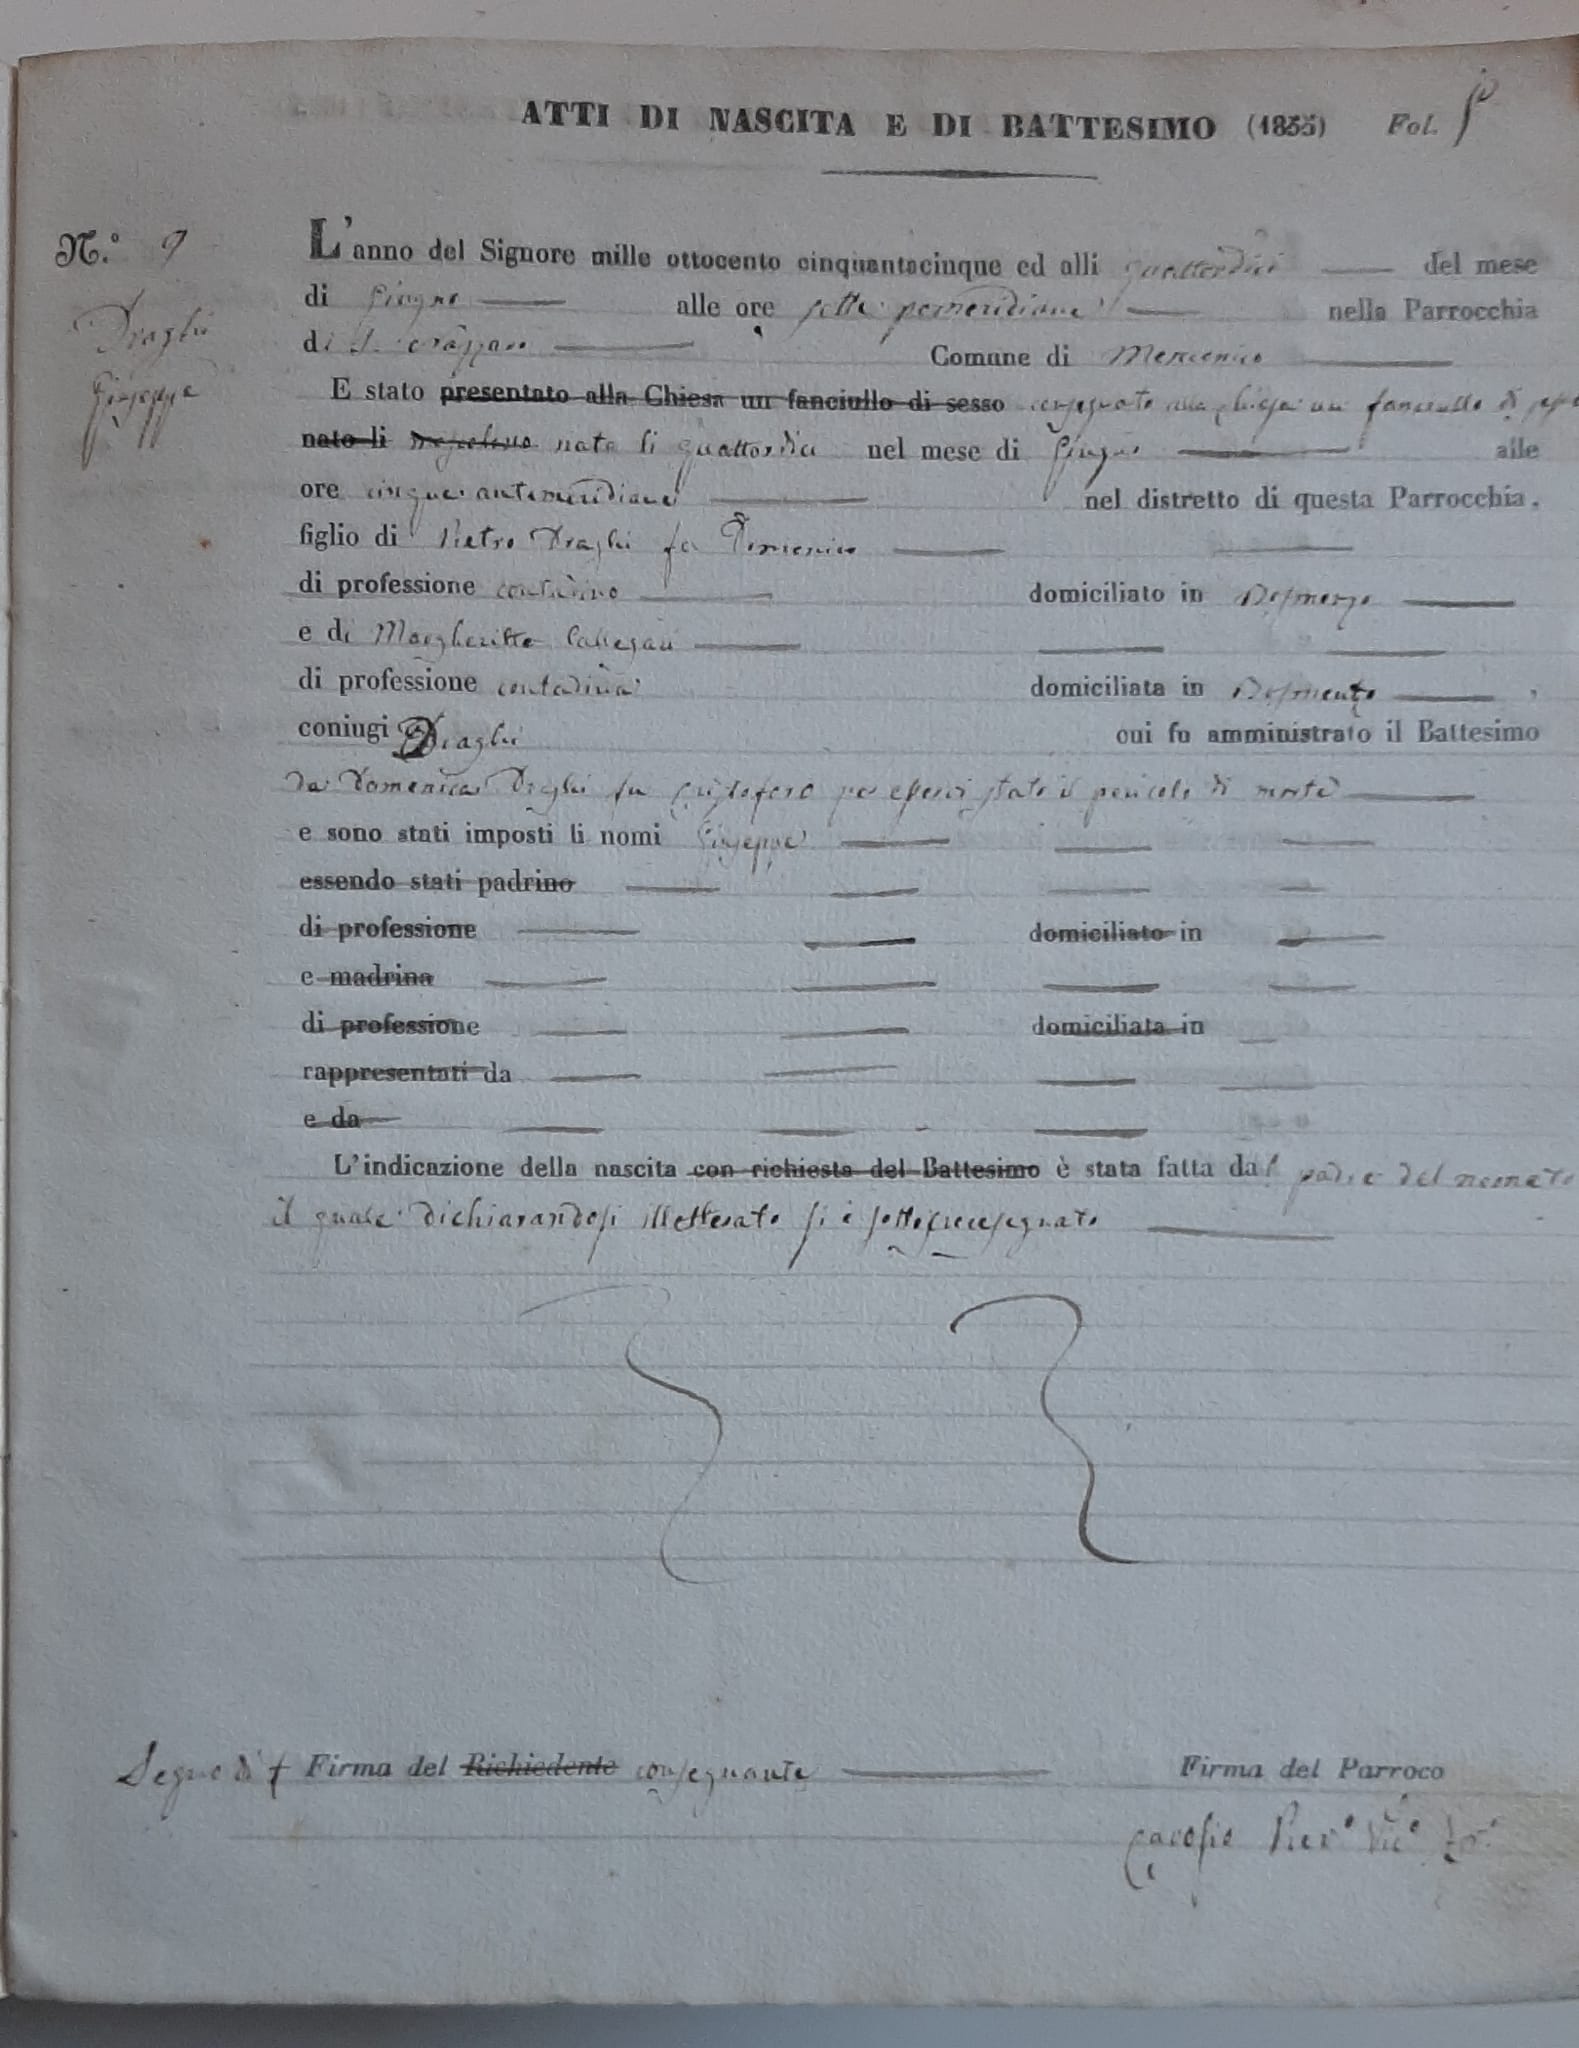 ATTI DI NASCITA E DI BATTESIMO (1855) Fol.
N.° 9
Draghi
Giuseppe
L'anno del Signore mille ottocento cinquantacinque ed alli quattordici del mese
di Giugno alle ore sette pomeridiane nella Parrocchia
di S. Nazzaro Comune di
E stato presentato alla Chiesa un fanciullo di sesso consegnato alla chiesa un fanciullo di
nato li mascolino nato li quattordici nel mese di Giugno alle
ore cinque antimeridiane nel distretto di questa Parrocchia,
figlio di Pietro Draghi fu Domenico
di professione contadino domiciliato in
e di Margheritta Callegari
di professione contadina domiciliata in ,
coniugi Draghi cui fu amministrato il Battesimo
da Domenica Draghi fu Cristoforo per esservi stato il pericolo di morte
e sono stati imposti li nomi Giuseppe
essendo stati padrino
di professione domiciliato in
e madrina
di professione domiciliata in
rappresentati da
e da
L'indicazione della nascita con richiesta del Battesimo è stata fatta dal padre del neonato
il quale dichiarandosi illetterato si è sottocrocesegnato
Segno di † Firma del Richiedente consegnante Firma del Parroco